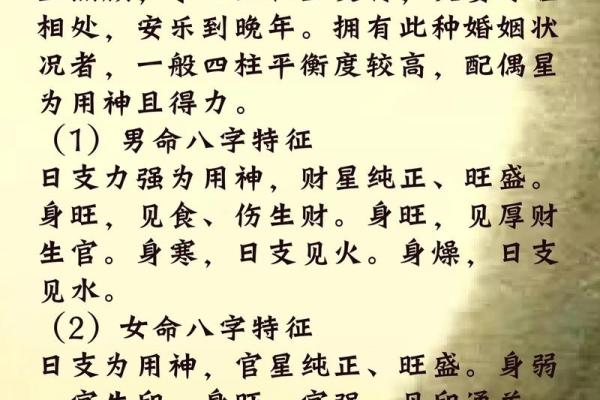 相处，安乐到晚年。拥有此种婚姻状
况者，一般四柱平衡度较高，配偶星
为用神且得力。
（1）男命八字特征
日支力强为用神，财星纯正、旺盛。
身旺，见食、伤生财。身旺，见厚财
生官。身寒，日支见火。身燥，日支
见水。
（2）女命八字特征
日支为用神，官星纯正、旺盛。身弱